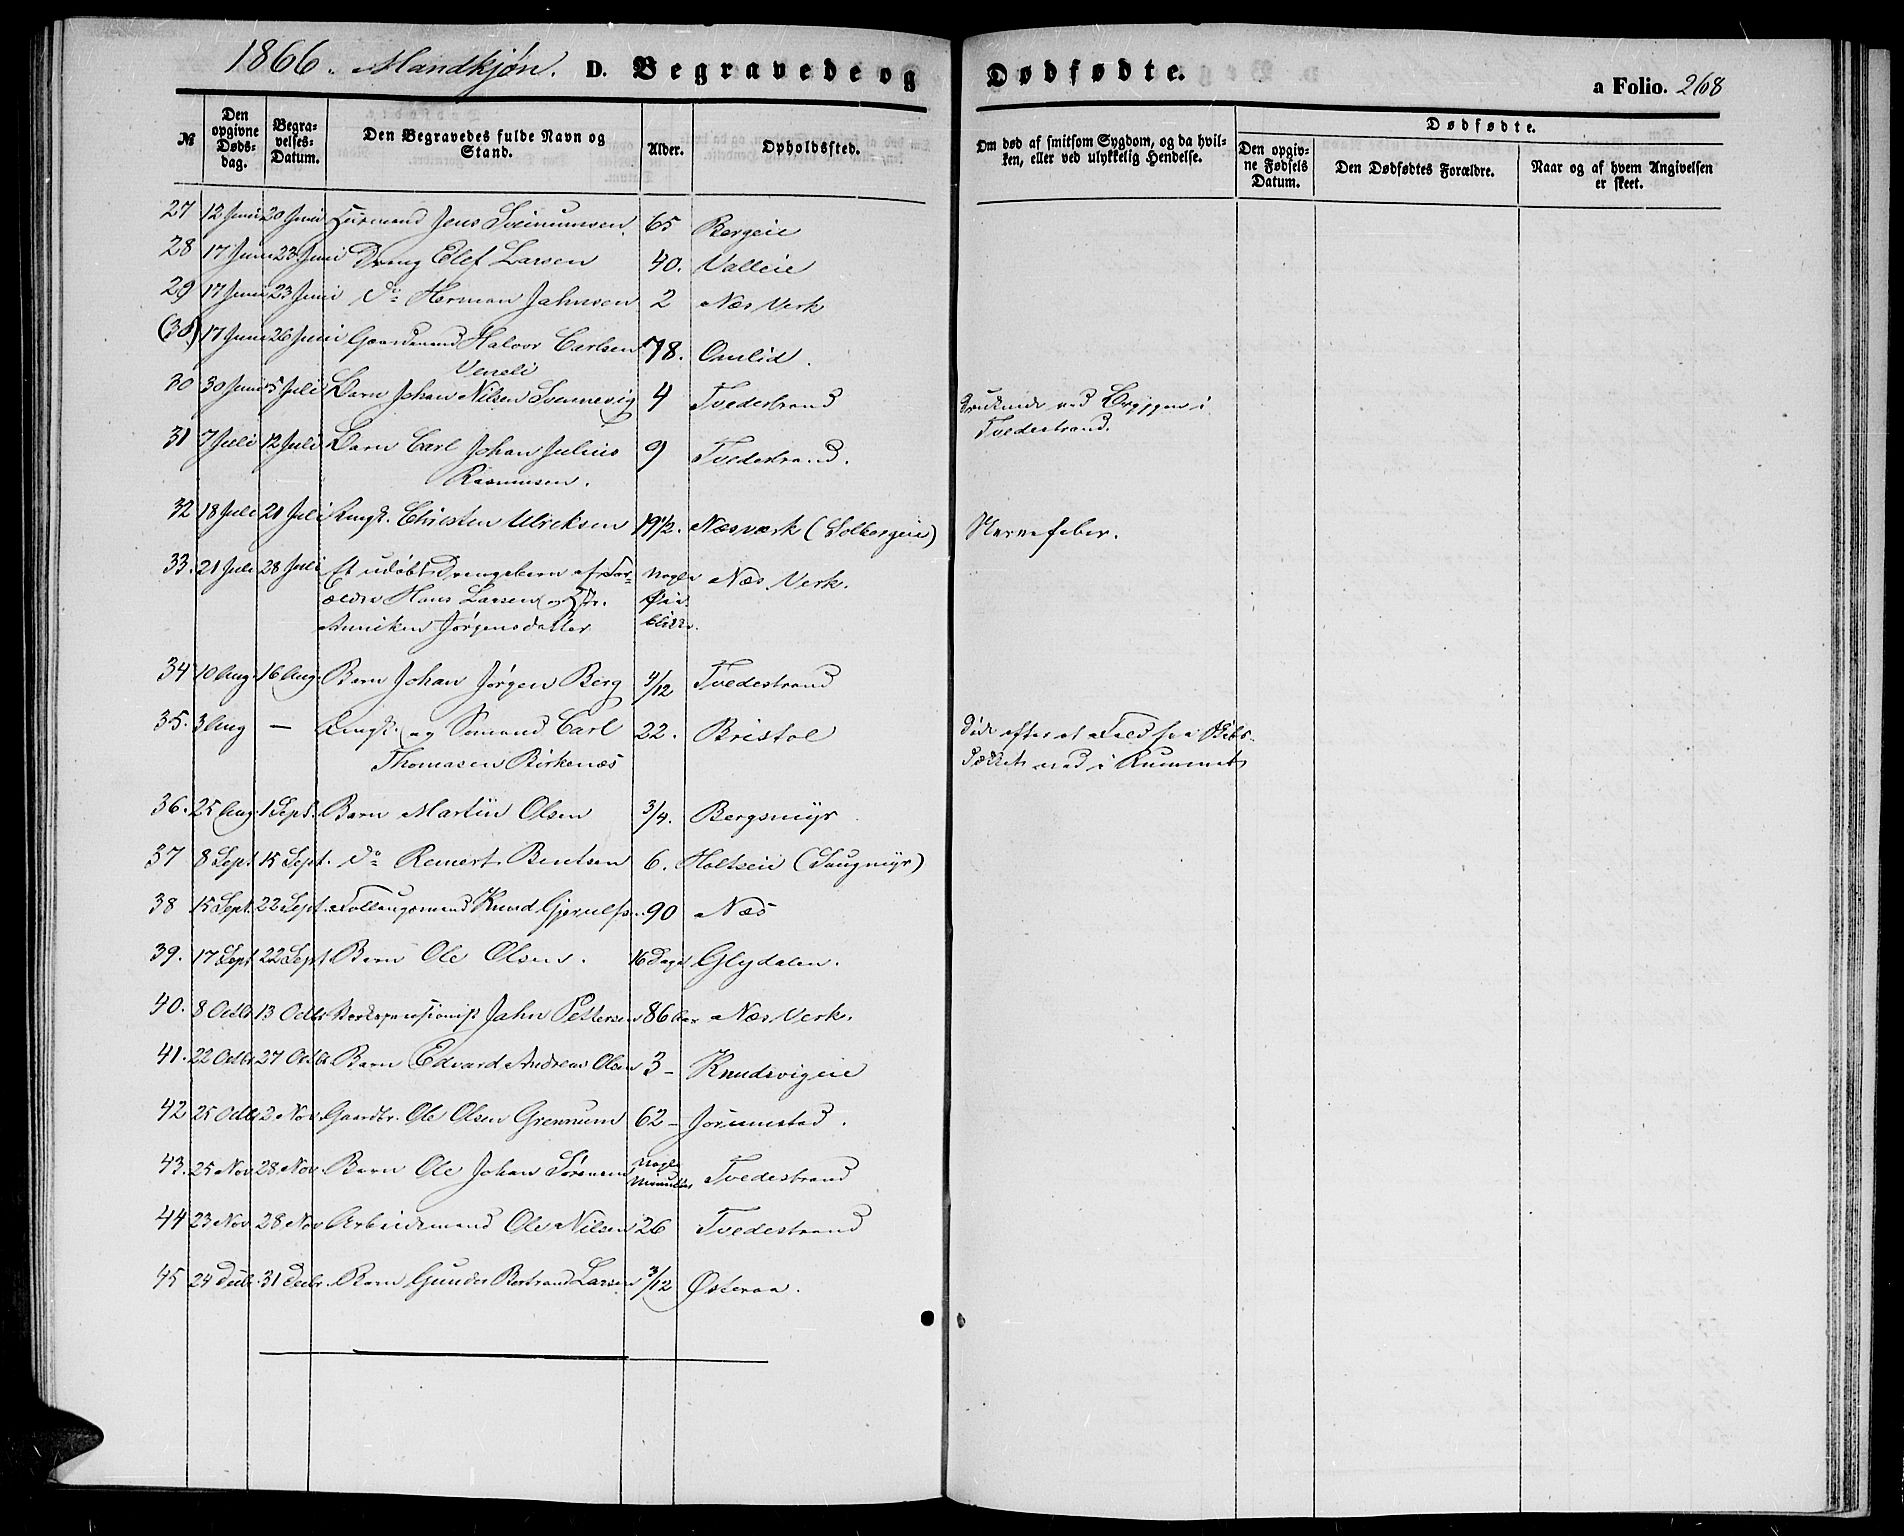 1866. Mandkjøn. D. Begravede og Dødfødte. a Folio. 268
№
Den opgivne Døds-dag.
Begra-velses-Datum.
Den Begravedes fulde Navn og Stand.
Alder.
Opholdssted.
Om død af smitsom Sygdom, og da hvil-ken, eller ved ulykkelig Hendelse.
Dødfødte.
Den opgiv-ne Fødsels Datum.
Den Dødfødtes Forældre.
Naar og af hvem Angivelsen er skeet.
27 12 Juni 20 Juni Huusmand Jens Sveinumsen 65 Bergeie
28 17 Juni 23 Juni Dreng Elef Larsen 40. Valleie
29 17 Juni 23 Juni do Herman Jahnsen 2 Næs Verk
(30) 17 Juni 26 Juni Gaardmand Halvor Carlsen 78. Omlid.
Veneli
30 30 Juni 5 Juli Barn Johan Nilsen Svennevig 4 Tvedestrand druknede ved Bryggen i
Tvedestrand.
31 7 Juli 12 Juli Barn Carl Johan Julius 9 Tvedestrand.
Rasmussen.
32 18 Juli 21 Juli Ungk. Christen Ulriksen 19 1/2. Næsværk (Solbergeie) Nervefeber.
33. 21 Juli 28 Juli Et udøbt Drengebarn af For- nogle Næs Verk.
ældre Hans Larsen og Hstr. Øie
Anniken Jørgensdatter blikke.
34 10 Aug. 16 Aug. Barn Johan Jørgen Berg 4/12 Tvedestrand
35. 3 Aug — Ungk. og Sømand Carl 22. Bristol Døde efter et Fald fra Skibs-
Thomasen Birkenæs dækket ned i Rummet
36. 25 Aug. 1 Sept. Barn Martin Olsen 3/4. Bergsmyr
37 8 Sept 15 Sept. do Reinert Bentsen 6. Holtseie (Saugmyr)
38 15 Sept. 22 Sept. Follaugsmand Knud Gjerulfs. 90 Næs
39. 17 Sept 22 Sept. Barn Ole Olsen. 16 Dage Glydalen.
40. 8 Octb. 13 Octbr Verkspensionist Jahn Pettersen 86 Aar Næs Verk.
41. 22 Octbr 27 Octbr. Barn Edvard Andreas Olsen 3 – Knudsvigeie
42 25 Octb 2 Nov. Gaardbr. Ole Olsen Grennum 62 – Jorunnstad.
43. 25 Nov 28 Nov. Barn Ole Johan Sørensen nogle Minutter Tvedestrand
44 23 Nov. 28 Nov Arbeidsmand Ole Nilsen 26 Tvedestrand
45 24 Decb. 31 Decbr. Barn Gunder Bertrand Larsen 3/12 Østeraa.